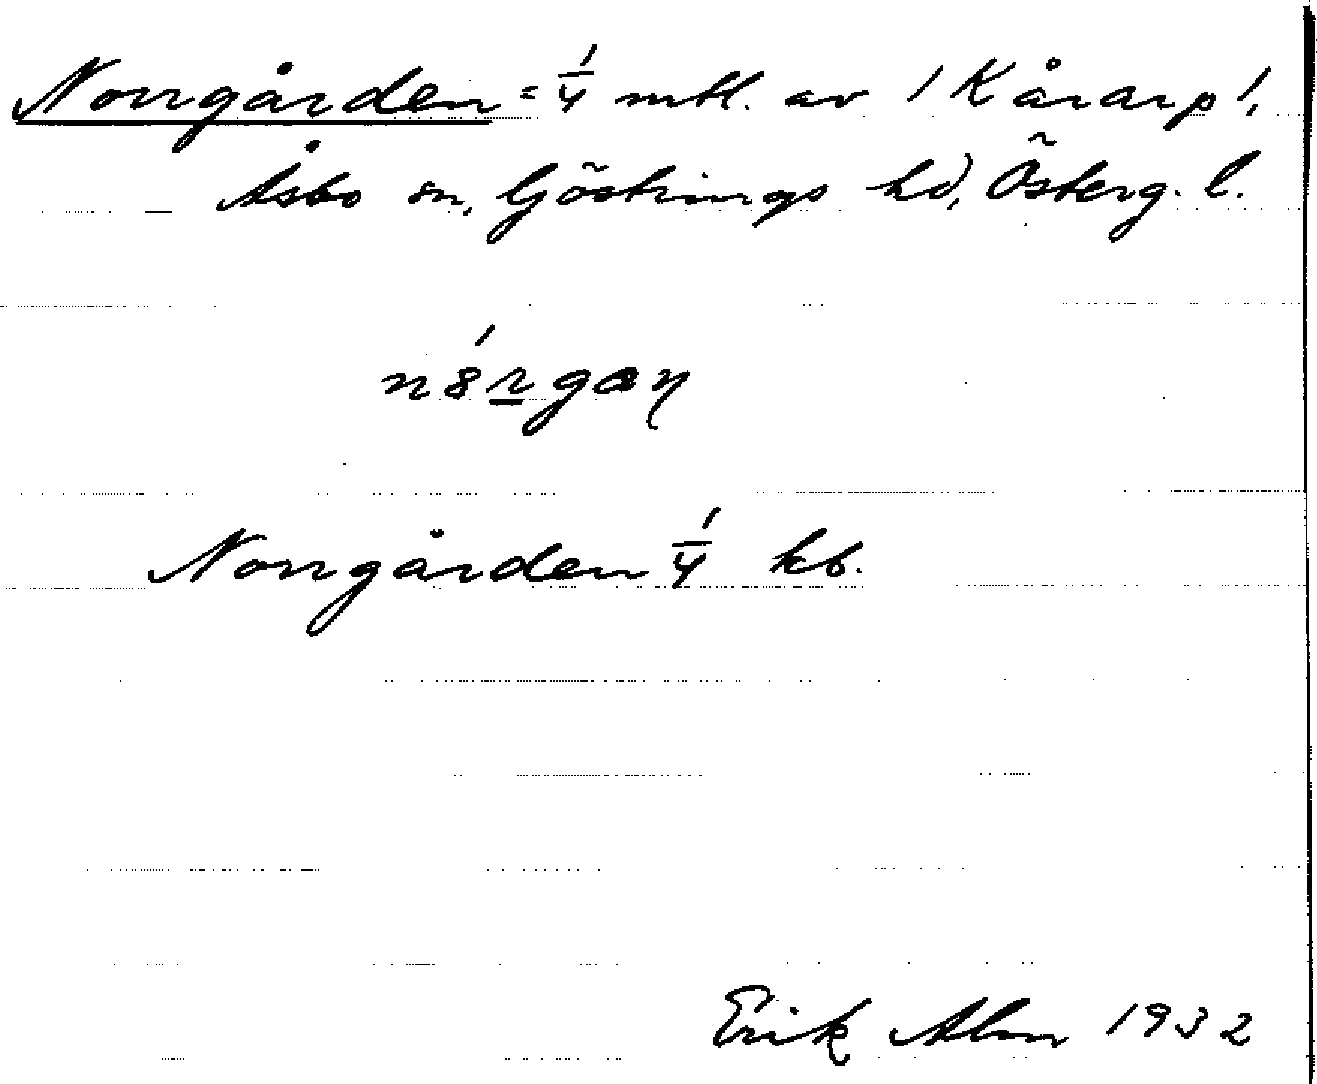 Norrgården = 1/4 mtl. av 1 Kårarp 1,
Åsbo sn, Göstrings hd, Österg. l.
Norrgården 1/4 kb.
Erik Alm 1932